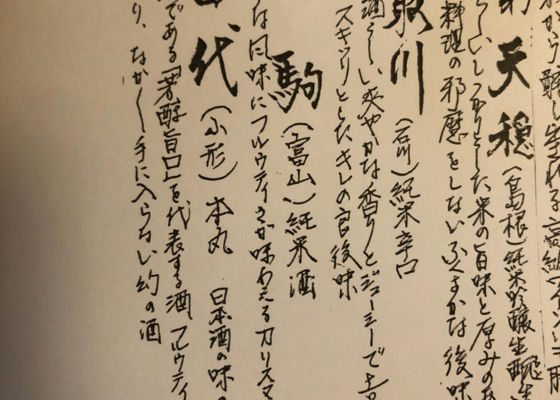 天穏(島根)純米吟醸生酛生
らしいしっかりとした米の旨味と厚みのあ
料理の邪魔をしないふくよかな後味
取川(石川)純米辛口
酒らしい爽やかな香りとジューシーで
スキッリとしたキレの良い後味
駒(富山)純米酒
な風味にフルウティさが味わえるカリスマ
代(山形)本丸 日本酒の味の
である「芳醇旨口」を代表する酒 フルウティ
り、なかなか手に入らない幻の酒